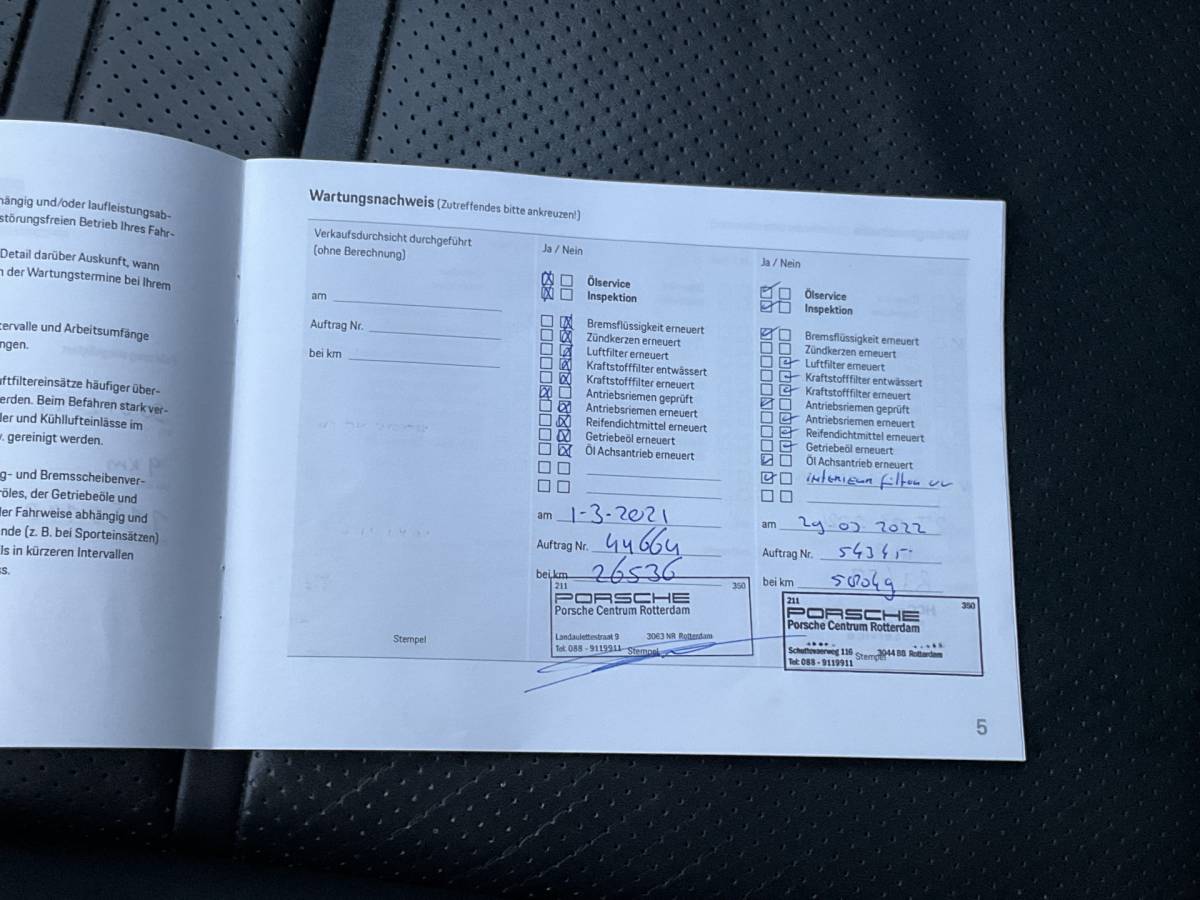 hängig und/oder laufleistungsab-
störungsfreien Betrieb Ihres Fahr-
Detail darüber Auskunft, wann
n der Wartungstermine bei Ihrem
ervalle und Arbeitsumfänge
ngen.
ftfiltereinsätze häufiger über-
erden. Beim Befahren stark ver-
ler und Kühllufteinlässe im
. gereinigt werden.
g- und Bremsscheibenver-
röles, der Getriebeöle und
der Fahrweise abhängig und
nde (z. B. bei Sporteinsätzen)
ls in kürzeren Intervallen
s.
Wartungsnachweis (Zutreffendes bitte ankreuzen!)
Verkaufsdurchsicht durchgeführt
(ohne Berechnung)
am
Auftrag Nr.
bei km
Stempel
Ja / Nein
Ölservice
Inspektion
Bremsflüssigkeit erneuert
Zündkerzen erneuert
Luftfilter erneuert
Kraftstofffilter entwässert
Kraftstofffilter erneuert
Antriebsriemen geprüft
Antriebsriemen erneuert
Reifendichtmittel erneuert
Getriebeöl erneuert
Öl Achsantrieb erneuert
am 1-3-2021
Auftrag Nr. 44664
bei km 26536
211 350
PORSCHE
Porsche Centrum Rotterdam
Landaulettestraat 9 3063 NR Rotterdam
Tel: 088 - 9119911 Stempel
Ja / Nein
Ölservice
Inspektion
Bremsflüssigkeit erneuert
Zündkerzen erneuert
Luftfilter erneuert
Kraftstofffilter entwässert
Kraftstofffilter erneuert
Antriebsriemen geprüft
Antriebsriemen erneuert
Reifendichtmittel erneuert
Getriebeöl erneuert
Öl Achsantrieb erneuert
interieur
am
Auftrag Nr.
bei km
211 350
PORSCHE
Porsche Centrum Rotterdam
Schuttevaerweg 116 Stempel 3044 BB Rotterdam
Tel: 088 - 9119911
5